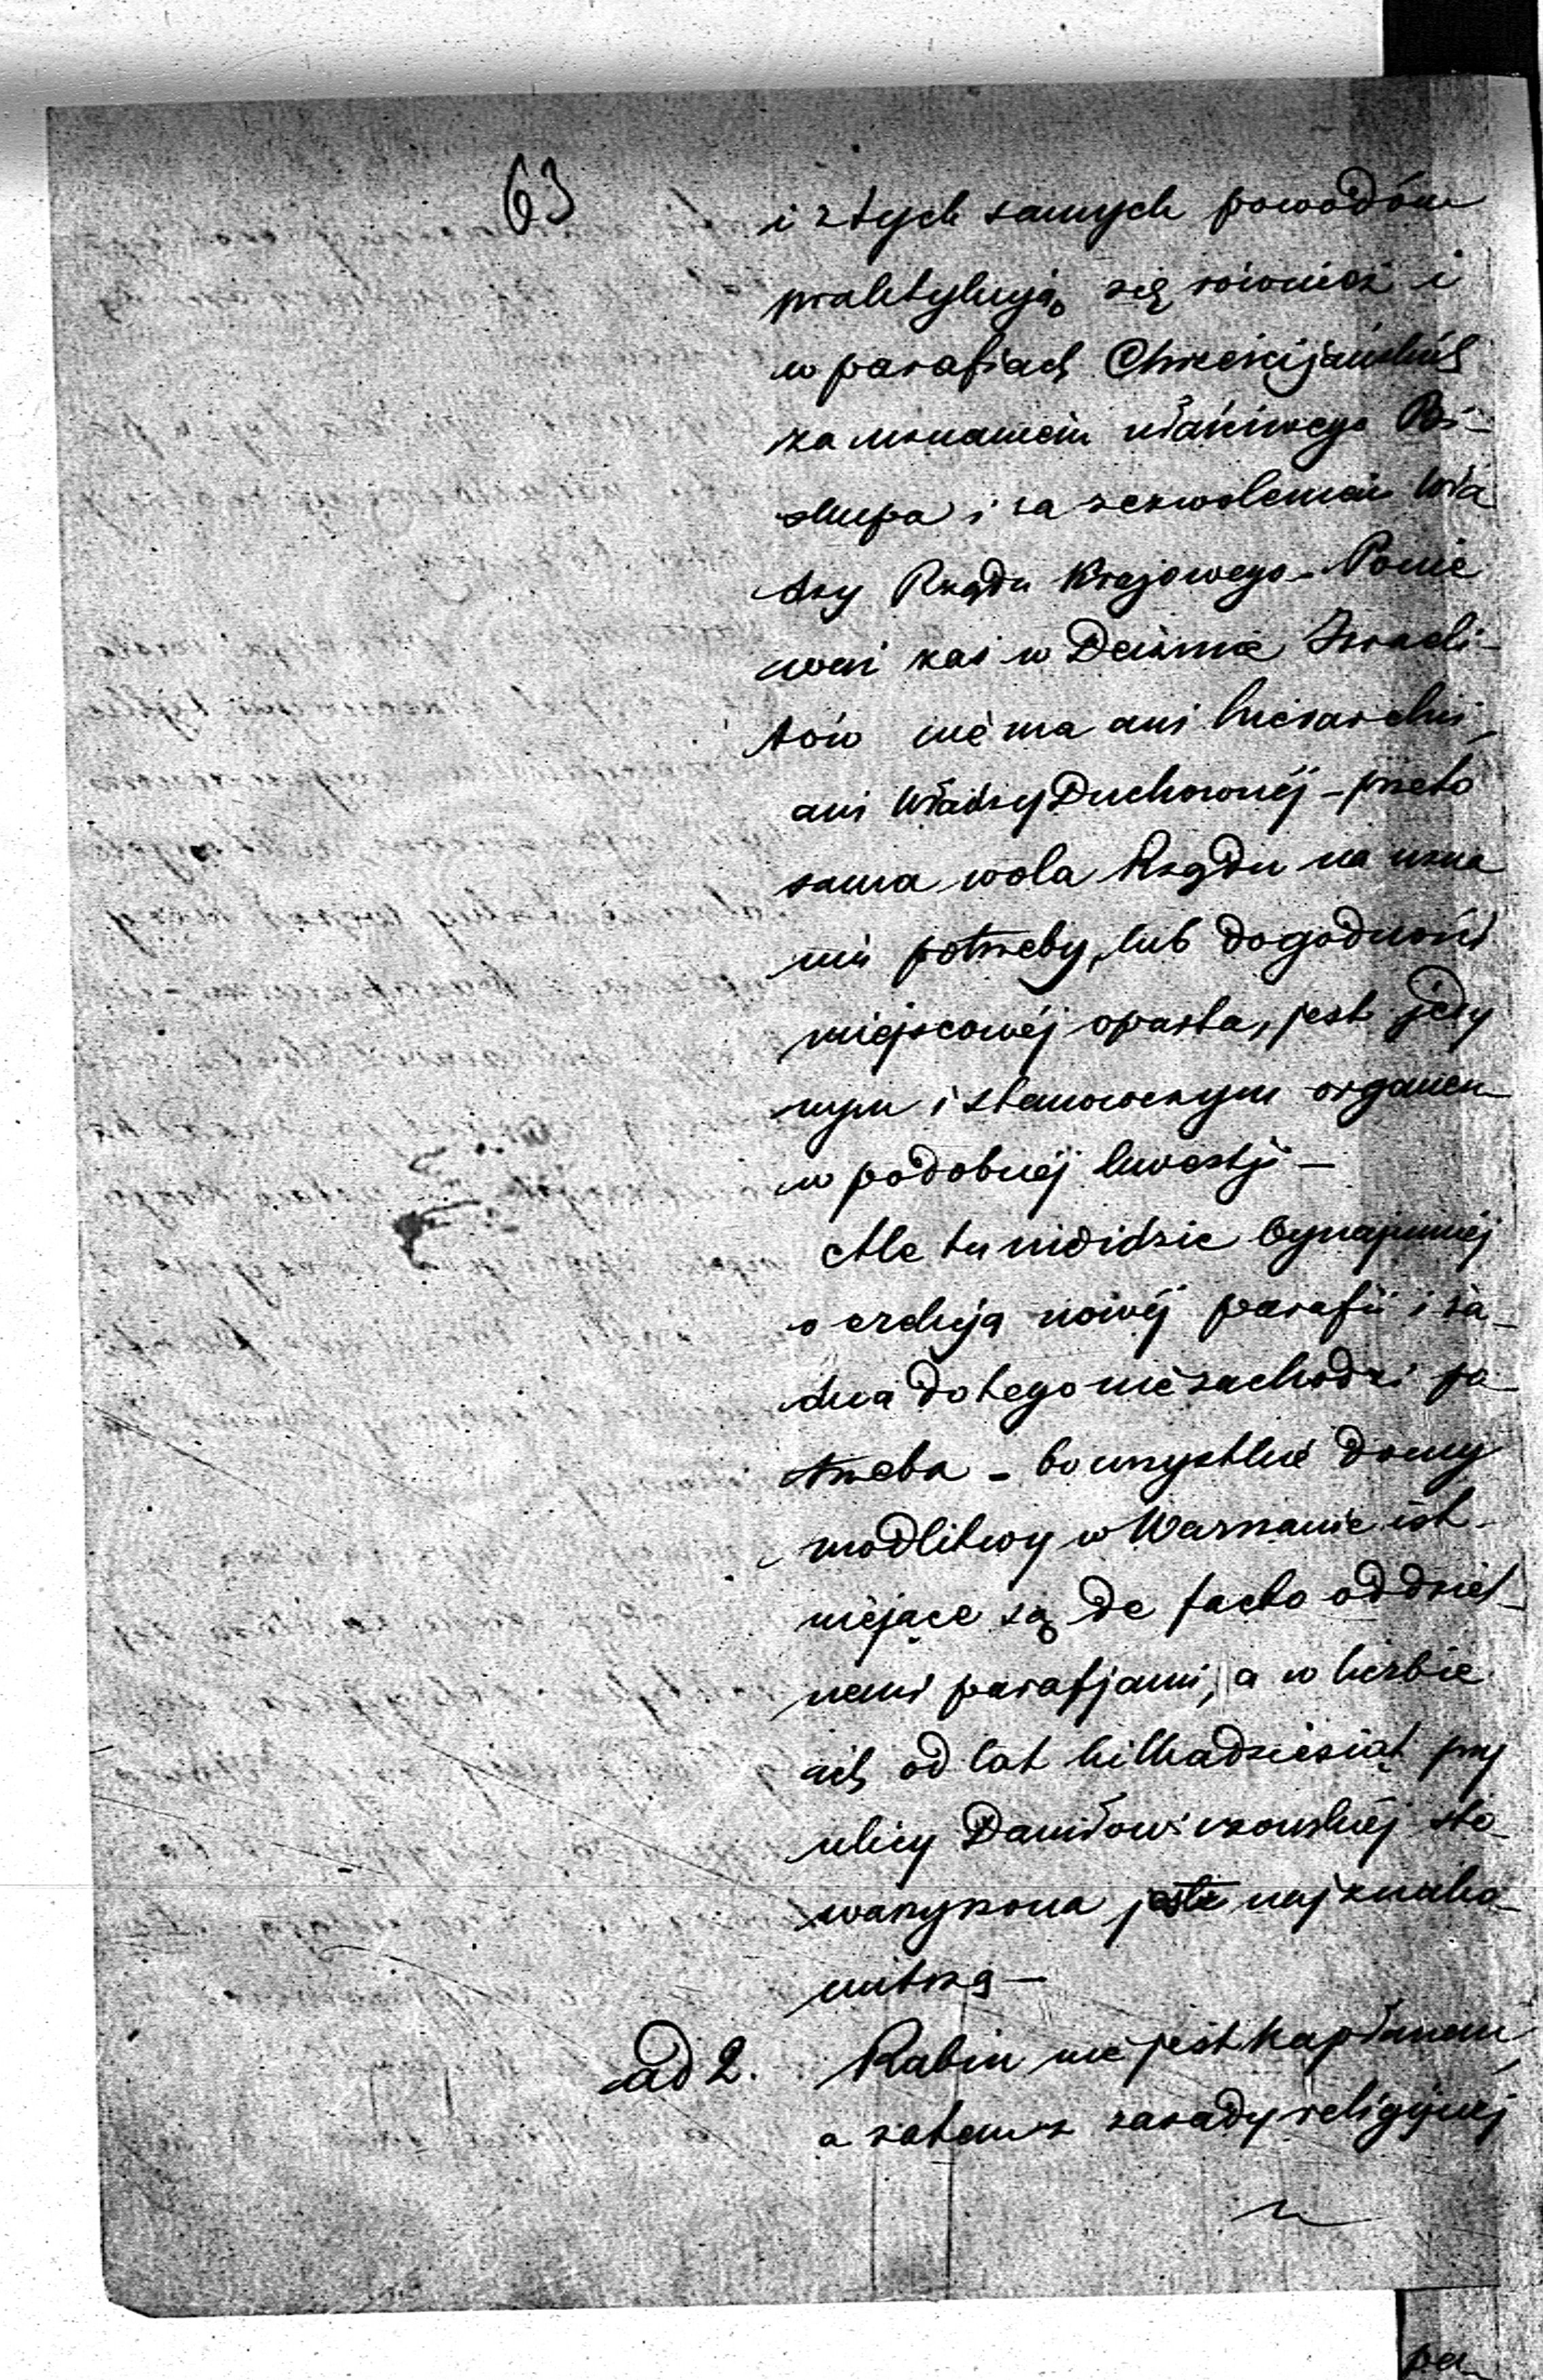 63
i z tych samych powodów
praktykują się również i
w parafiach Chrześcijańskich
za uznaniem właściwego Bi-
skupa i za zezwoleniem Wła
dzy Rządu Krajowego – Ponie
waż zaś w Deizmie Izraeli-
tów niéma ani hierarchii,
ani Władzy Duchownéj – przeto
sama wola Rządu na uzna
niu potrzeby, lub dogodności
miejscowéj oparta, jest jedy
nym i stanowczym organem
w podobnéj kwestji –
Ale tu nieidzie bynajmniéj
o erekcją nowéj parafii i ża-
dna do tego niezachodzi po-
trzeba – bo wszystkie domy
modlitwy w Warszawie ist-
niejące są de facto oddziel-
nemi parafjami, a w liczbie
ich od lat kilkadziesiąt przy
ulicy Daniłowiczowskiéj sto-
warzyszona jest najznako-
mitszą –
ad 2. Rabin nie jest kapłanem,
a zatem z zasady religijnéj
pa